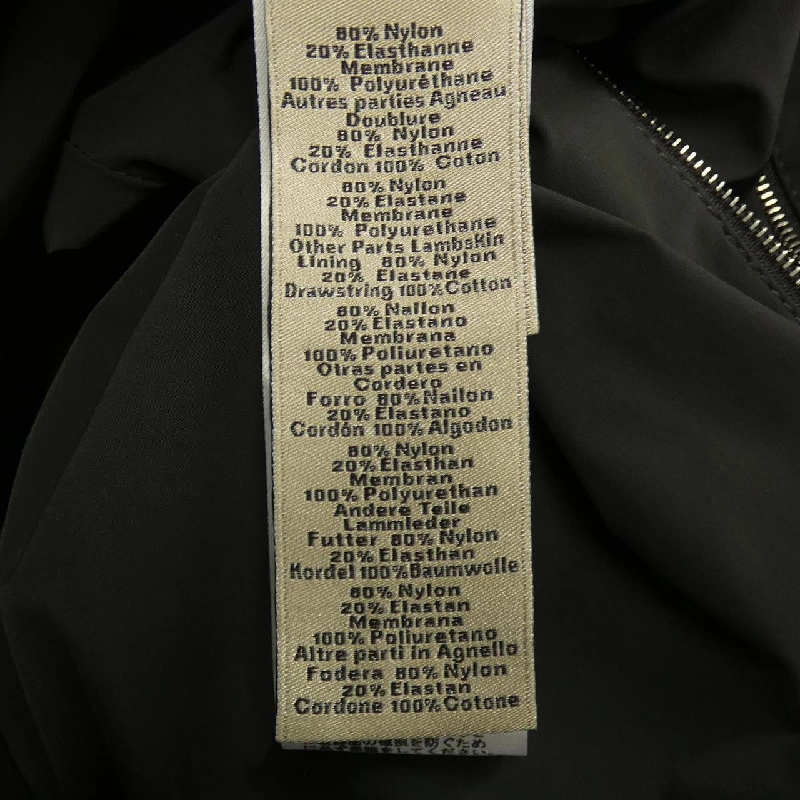 80% Nylon
20% Elasthanne
Membrane
100% Polyuréthane
Autres parties Agneau
Doublure
80% Nylon
20% Elasthanne
Cordon 100% Coton
80% Nylon
20% Elastane
Membrane
100% Polyurethane
Other Parts LambsKin
Lining 80% Nylon
20% Elastane
Drawstring 100% Cotton
80% Nailon
20% Elastano
Membrana
100% Poliuretano
Otras partes en
Cordero
Forro 80% Nailon
20% Elastano
Cordón 100% Algodon
80% Nylon
20% Elasthan
Membran
100% Polyurethan
Andere Teile
Lammleder
Futter 80% Nylon
20% Elasthan
Kordel 100% Baumwolle
80% Nylon
20% Elastan
Membrana
100% Poliuretano
Altre parti in Agnello
Fodera 80% Nylon
20% Elastan
Cordone 100% Cotone
を防ぐため
してください。